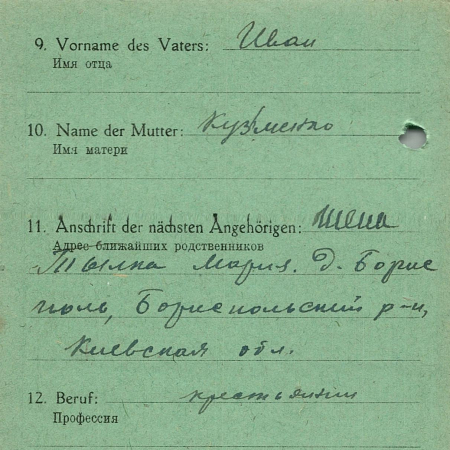 9. Vorname des Vaters: Иван
Имя отца
10. Name der Mutter: Кузьменко
Имя матери
11. Anschrift der nächsten Angehörigen: жена
Адрес ближайших родственников
Тылка Мария. Д. Борис
поль, Бориспольский р-н,
Киевская обл.
12. Beruf: крестьянин
Профессия